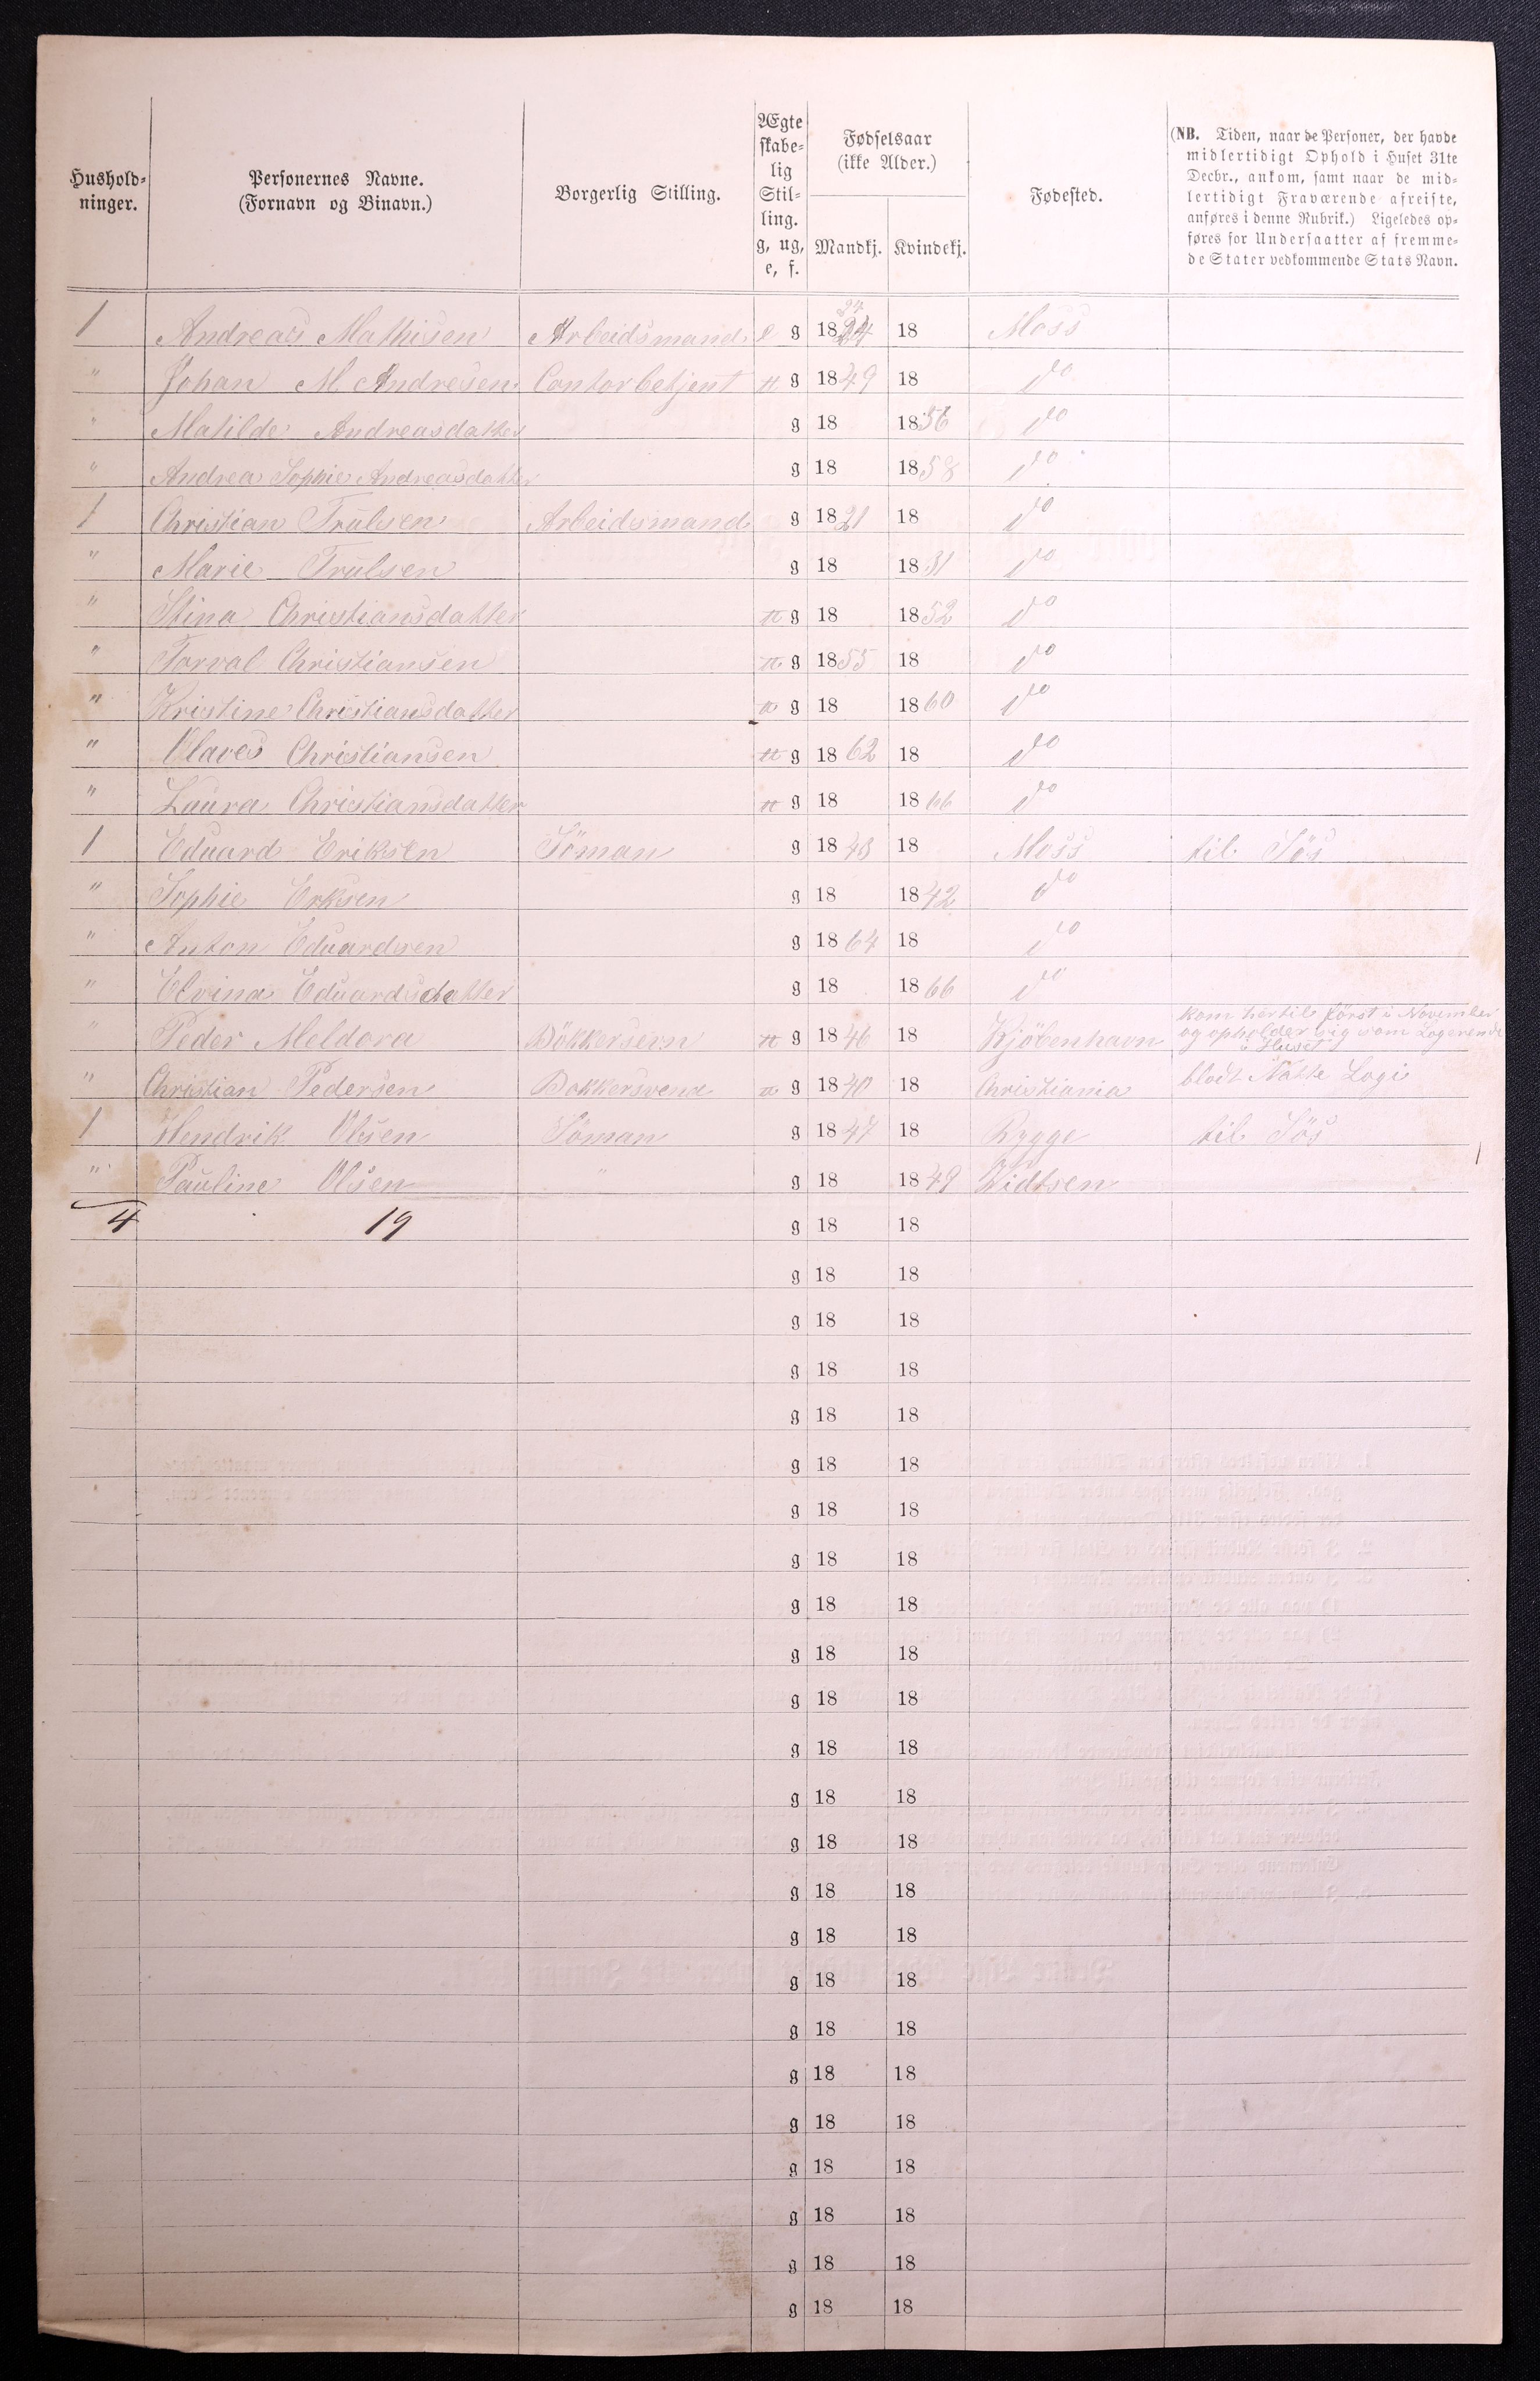 Hushold-
ninger.
Personernes Navne.
(Fornavn og Binavn.)
Borgerlig Stilling.
Ægte
skabe-
lig
Stil-
ling.
g, ug,
e, f.
Fødselsaar
(ikke Alder.)
Mandkj. Kvindekj.
Fødested.
(NB. Tiden, naar de Personer, der havde
midlertidigt Ophold i Huset 31te
Decbr., ankom, samt naar de mid-
lertidigt Fraværende afreiste,
anføres i denne Rubrik.) Ligeledes op-
føres for Undersaatter af fremme-
de Stater vedkommende Stats Navn.
1 Andreas Mathisen Arbeidsmand e g 1824 27 18 Moss
" Johan M. Andresen Contorbetjent u g 1849 18 do
" Matilde Andreasdatter g 18 1856 do
" Andrea Sophie Andreasdatter g 18 1858 do
1 Christian Trulsen Arbeidsmand g 1821 18 do
" Marie Trulsen g 18 1831 do
" Stina Christiansdatter u g 18 1852 do
" Torval Christiansen u g 1855 18 do
" Kristine Christiansdatter u g 18 1860 do
" Olaves Christiansen u g 1862 18 do
" Laura Christiansdatter u g 18 1866 do
1 Eduard Eriksen Söman g 1843 18 Moss til Sös
" Sophie Erksen g 18 1842 do
" Anton Eduardsen g 1864 18 do
" Elvina Eduardsdatter g 18 1866 do
" Peder Meldora Bökkersven u g 1846 18 Kjöbenhavn kom hertil först i November
og opholder sig som Logerende
i Huset
" Christian Pedersen Bokkersvend u g 1840 18 Christiania blodt Natte Logi
1 Hendrik Olsen Söman g 1847 18 Rygge til Sös
" Pauline Olsen " g 18 1849 Widtsen
4 19 g 18 18
g 18 18
g 18 18
g 18 18
g 18 18
g 18 18
g 18 18
g 18 18
g 18 18
g 18 18
g 18 18
g 18 18
g 18 18
g 18 18
g 18 18
g 18 18
g 18 18
g 18 18
g 18 18
g 18 18
g 18 18
g 18 18
g 18 18
g 18 18